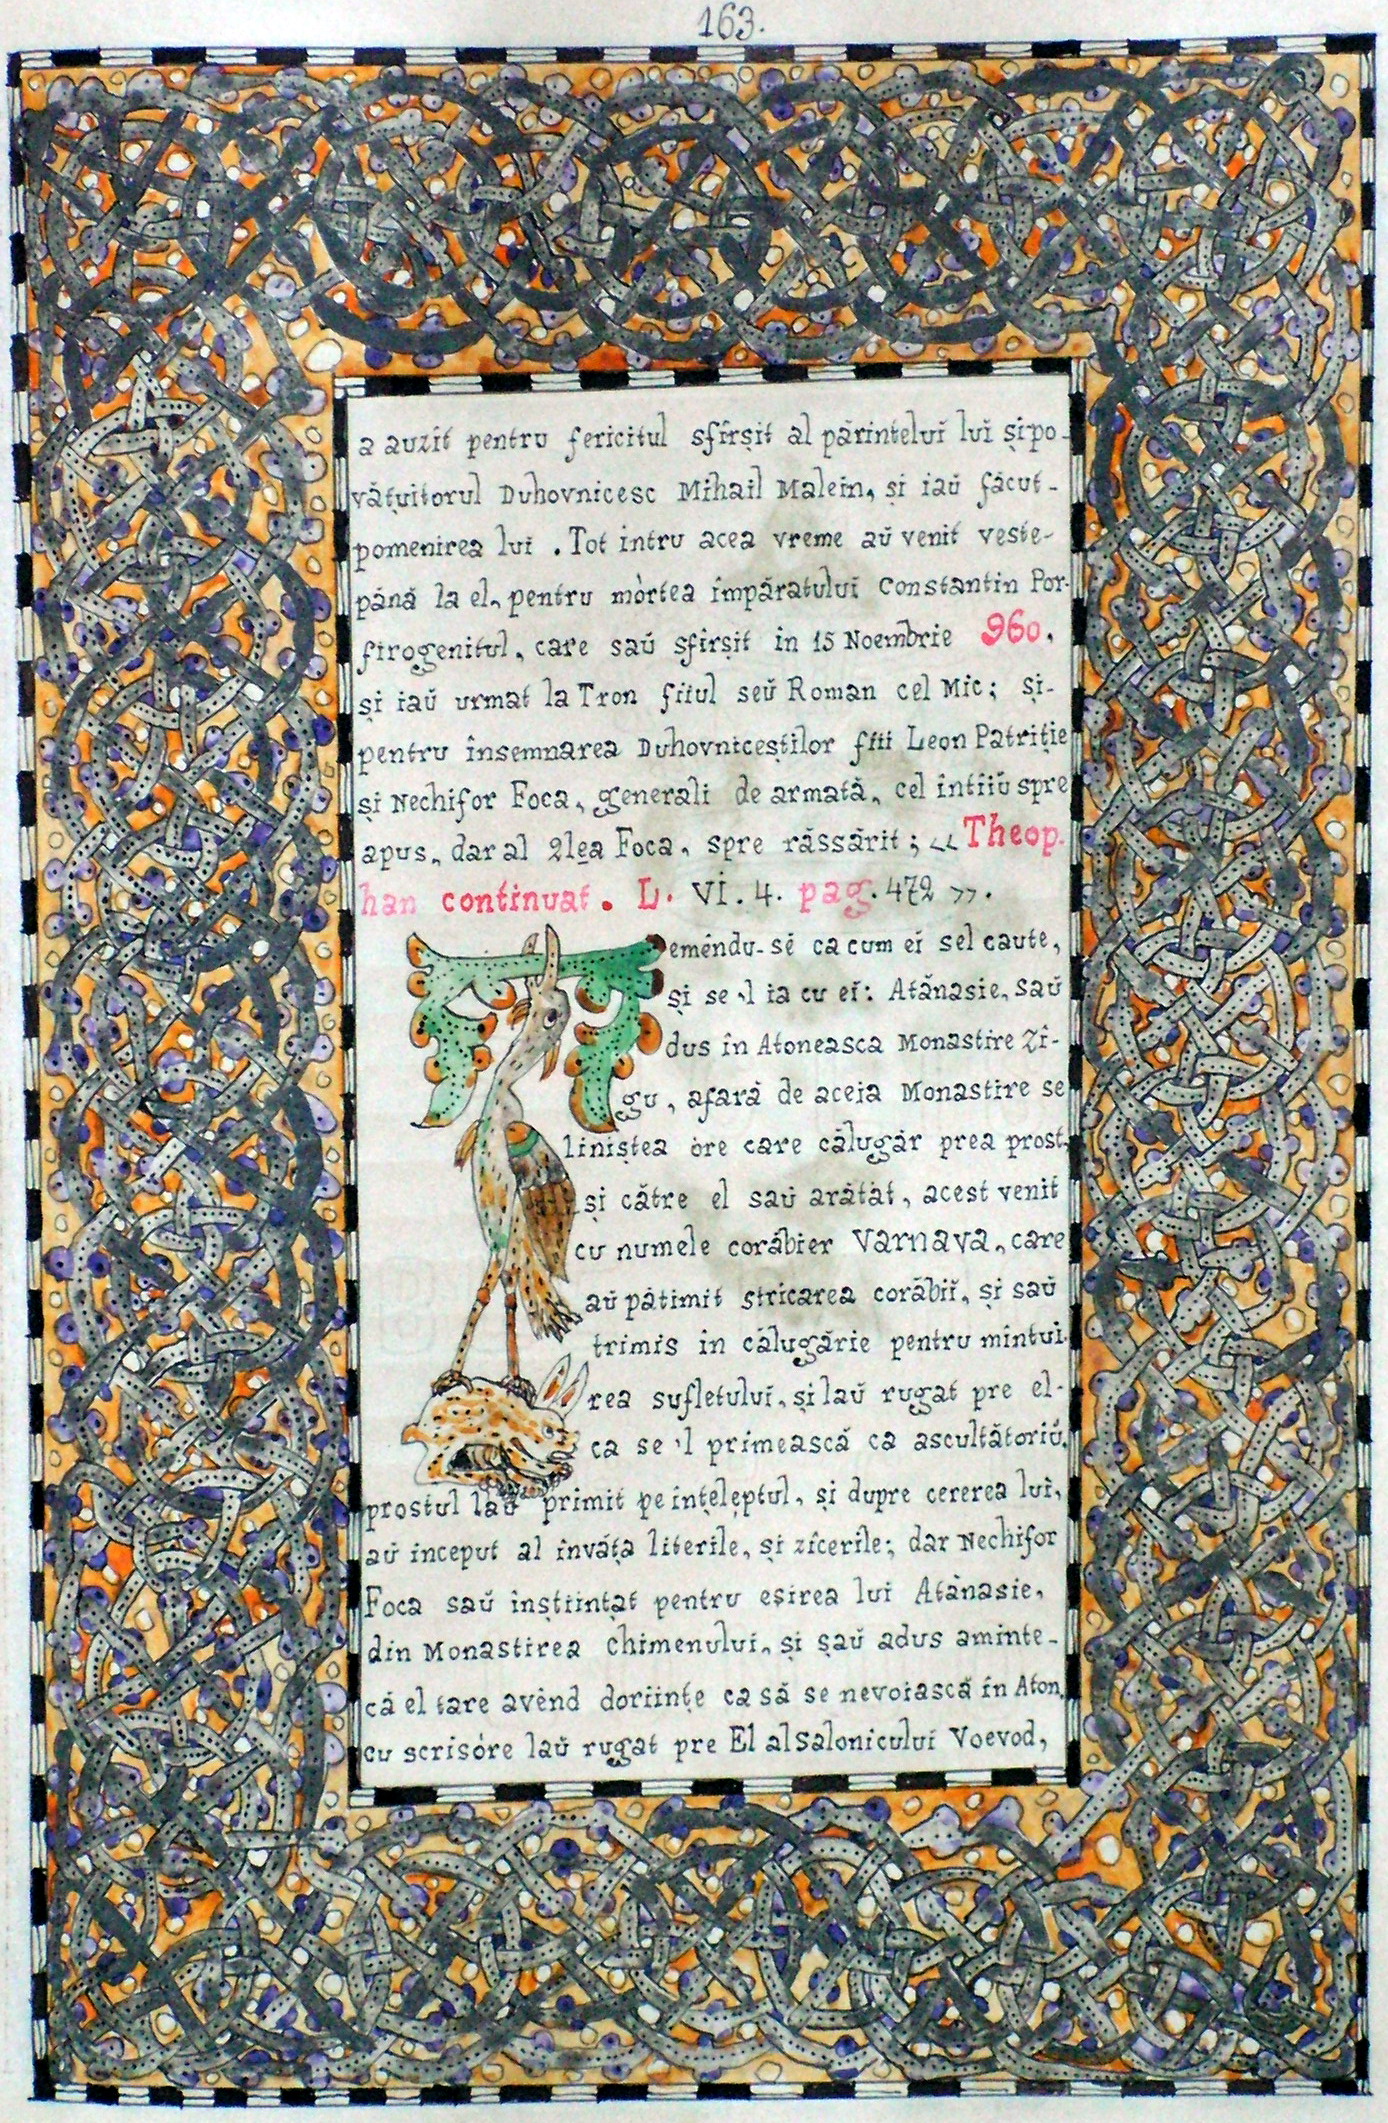 163.
a auzit pentru fericitul sfîrșit al părintelui̯ lui̯ și po-
vățuitorul Duhovnicesc Mihail Malein, și iaŭ făcut-
pomenirea lui . Tot intru acea vreme aŭ venit veste-
pănă la el, pentru mòrtea împăratului̯ Constantin Por-
firogenitul, care saŭ sfîrșit în 15 Noembrie 960.
și iaŭ urmat la Tron fiiul seŭ Roman cel Mic; și-
pentru însemnarea Duhovniceștilor fiii Leon Patriție
și Nechifor Foca, generali de armată, cel întîiŭ spre
apus, dar al 2lea Foca, spre răssărit; « Theop-
han continuat. L. VI. 4. pag. 472 ».
Temêndu-sě ca cum ei̯ sel caute,
și se 'l ia cu ei̯: Atănasie, saŭ
dus în Atoneasca Monastire Zî-
gu, afară de aceia Monastire se
liniștea òre care călugăr prea prost,
și către el saŭ arătat, acest venit
cu numele corăbier Varnava, care
aŭ pătimit stricarea corăbii̯, și saŭ
trimis in călugărie pentru mîntui-
rea sufletului̯, și laŭ rugat pre el-
ca se 'l primească ca ascultătoriŭ,
prostul laŭ primit pe ințeleptul, și dupre cererea lui̯,
aŭ început al învăța literile, și zîcerile; dar Nechifor
Foca saŭ înștiințat pentru eșirea lui Atănasie,
din Monastirea Chimenului, și șaŭ adus aminte-
că el tare avênd doriințe ca să se nevoiască în Aton,
cu scrisòre laŭ rugat pre El al Salonicului Voevod,